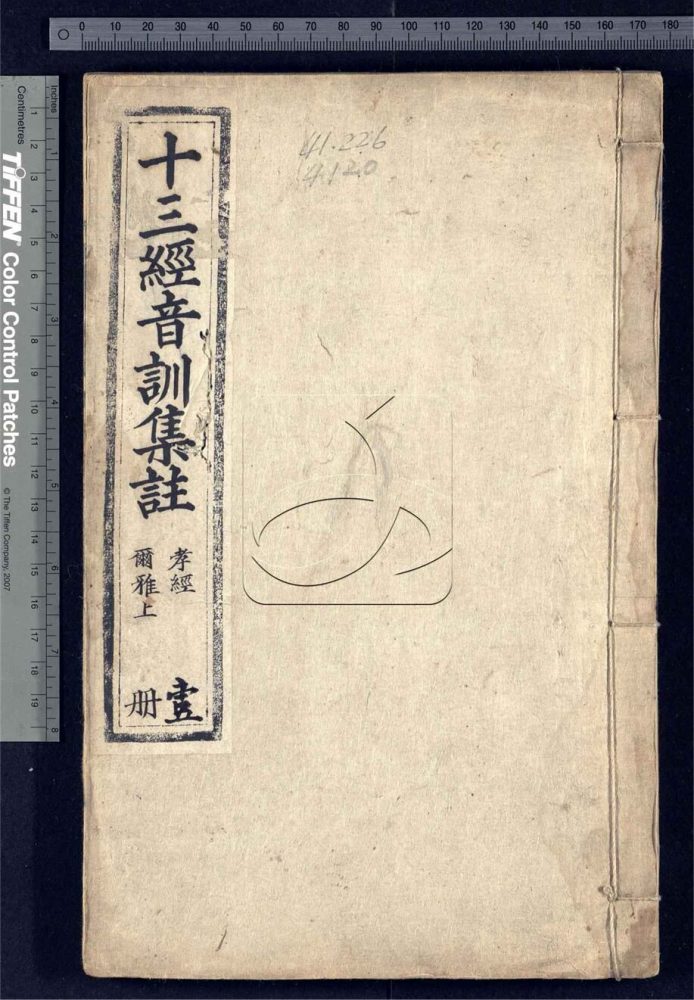 0 10 20 30 40 50 60 70 80 90 100 110 120 130 140 150 160 170 180
Inches
1 2 3 4 5 6 7 8
Centimetres
1 2 3 4 5 6 7 8 9 10 11 12 13 14 15 16 17 18 19
TIFFEN® Color Control Patches
© The Tiffen Company, 2007
41.226
4.120
十三經音訓集註
孝經
爾雅上
壹
册